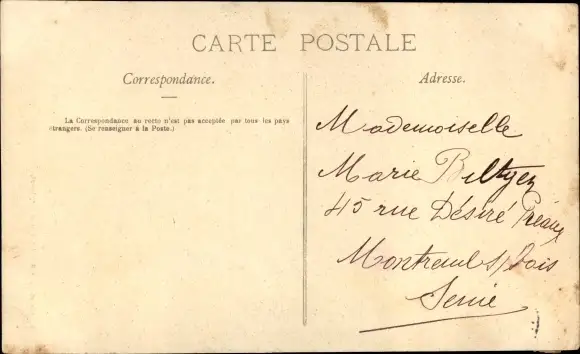 CARTE POSTALE
Correspondance.
La Correspondance au recto n'est pas acceptée par tous les pays
étrangers. (Se renseigner à la Poste.)
Adresse.
Mademoiselle
Marie Biltyez
45 rue Désiré Préaux
Montreuil s/ Bois
Seine